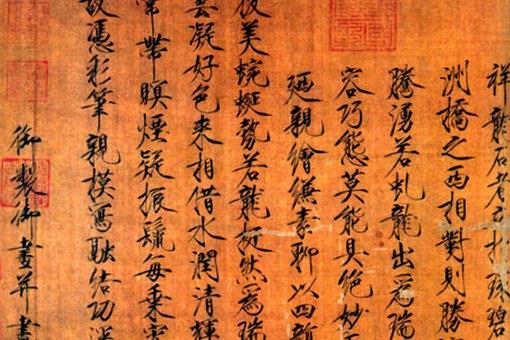 祥龍石者立於環碧
洲橋之西相對則勝
騰湧若虬龍出爲瑞
容巧態莫能具絕妙
廼親繪縑素聊以四韻
彼美蜿蜒勢若龍挺然爲瑞
雲凝好色來相借水潤清輝
常帶暝煙疑振鬣每乘宵
故憑彩筆親模寫融結功深
御製御畫并書